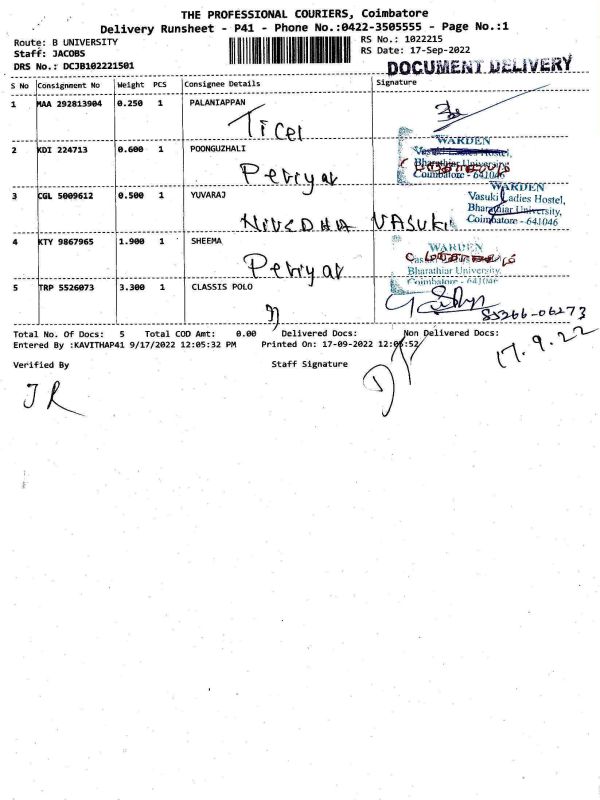 THE PROFESSIONAL COURIERS, Coimbatore
Delivery Runsheet - P41 - Phone No.:0422-3505555 - Page No.:1
Route: B UNIVERSITY
RS No.: 1022215
Staff: JACOBS
RS Date: 17-Sep-2022
DRS No.: DCJB102221501
DOCUMENT DELIVERY
S No Consignment No Weight PCS Consignee Details Signature
1 MAA 292813904 0.250 1 PALANIAPPAN
TICEL
2 KDI 224713 0.600 1 POONGUZHALI
Periyar
WARDEN
Vasuki Ladies Hostel,
Bharathiar University
Coimbatore - 641046
3 CGL 5009612 0.500 1 YUVARAJ
NIVEDHA VASUKI
WARDEN
Vasuki Ladies Hostel,
Bharathiar University,
Coimbatore - 641046
4 KTY 9867965 1.900 1 SHEEMA
Periyar
WARDEN
Bharathiar University,
Coimbatore - 641046
5 TRP 5526073 3.300 1 CLASSIS POLO
85266-06273
Total No. Of Docs: 5 Total COD Amt: 0.00 Delivered Docs: Non Delivered Docs:
Entered By :KAVITHAP41 9/17/2022 12:05:32 PM Printed On: 17-09-2022 12:05:52
17.9.22
Verified By Staff Signature
JR